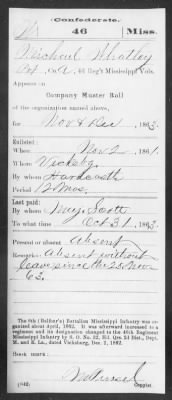 Confederate.
46 Miss.
Michael Whatley
Pvt, Co. A, 46 Reg't Mississippi Vols.
Appears on
Company Muster Roll
of the organization named above,
for Nov & Dec, 1863.
Enlisted:
When Nov 2, 1861.
Where Vicksbg.
By whom Hardcastle
Period 12 Mos.
Last paid:
By whom Maj. Scott
To what time Oct 31, 1863.
Present or absent Absent
Remarks: Absent without
leave since the 25 Nov
63.
organized about April, 1862. It was afterward increased to a
regiment and its designation changed to the 46th Regiment
Mississippi Infantry by S. O. No. 32,
M. and E. La., dated Vicksburg, Dec. 2, 1862.
Book mark:
(642)
Copyist.